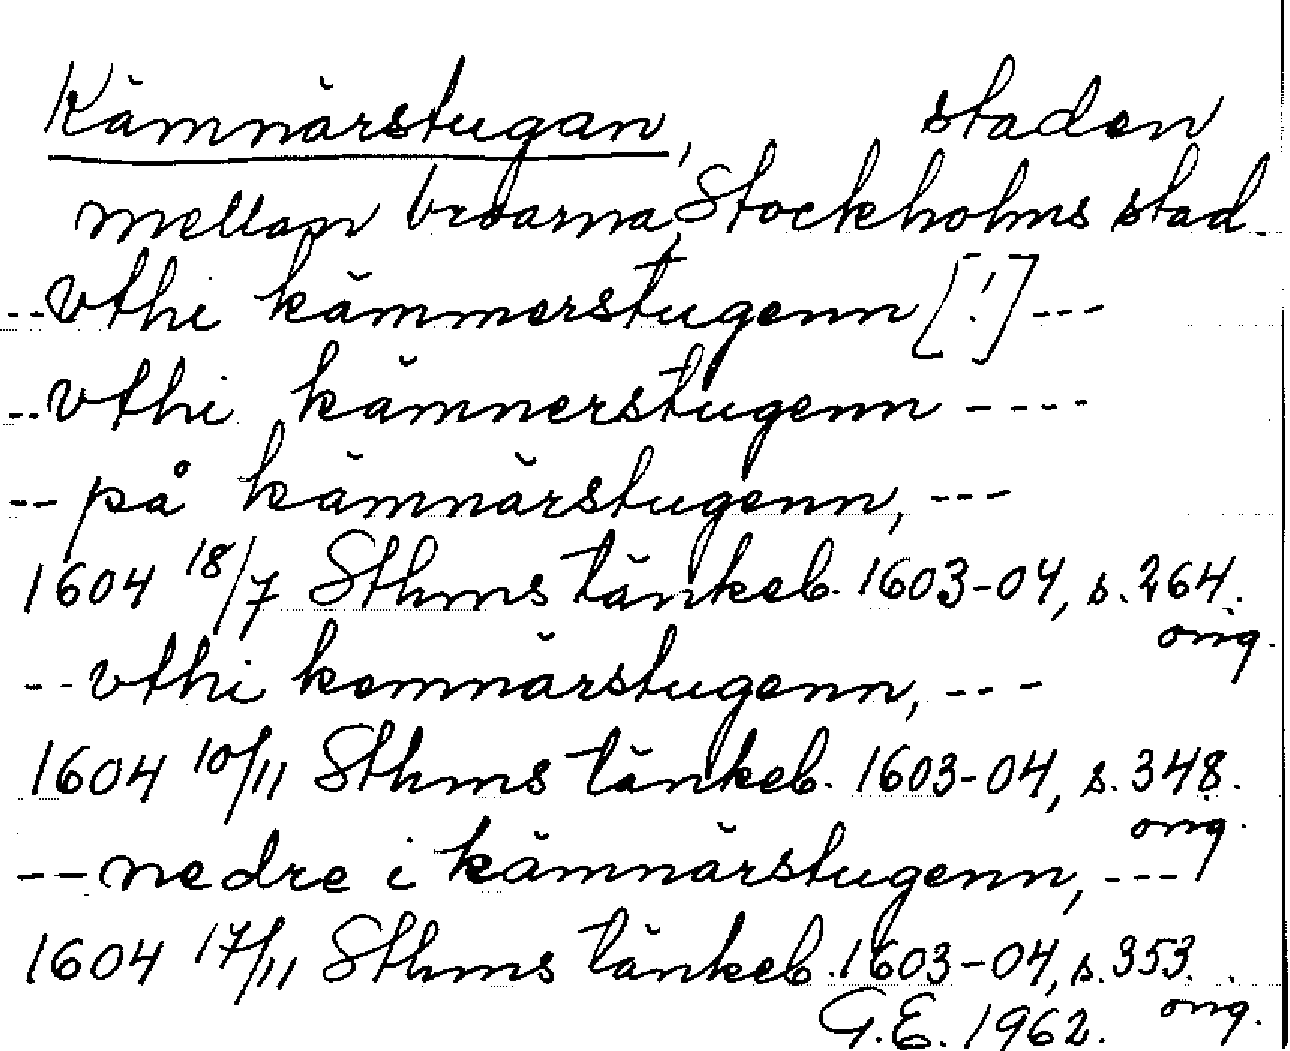 Kämnärstugan, staden
mellan broarna, Stockholms stad.
--vthi kämmerstugenn [!] ---
--vthi kämnerstugenn ----
-- på kämnärstugenn, ---
1604 18/7 Sthms tänkeb. 1603-04, s. 264.
orig.
--vthi kemnärstugenn, ---
1604 10/11 Sthms tänkeb. 1603-04, s. 348.
orig.
--nedre i kämnärstugenn, ---
1604 17/11 Sthms tänkeb. 1603-04, s. 353.
orig.
G.E. 1962.